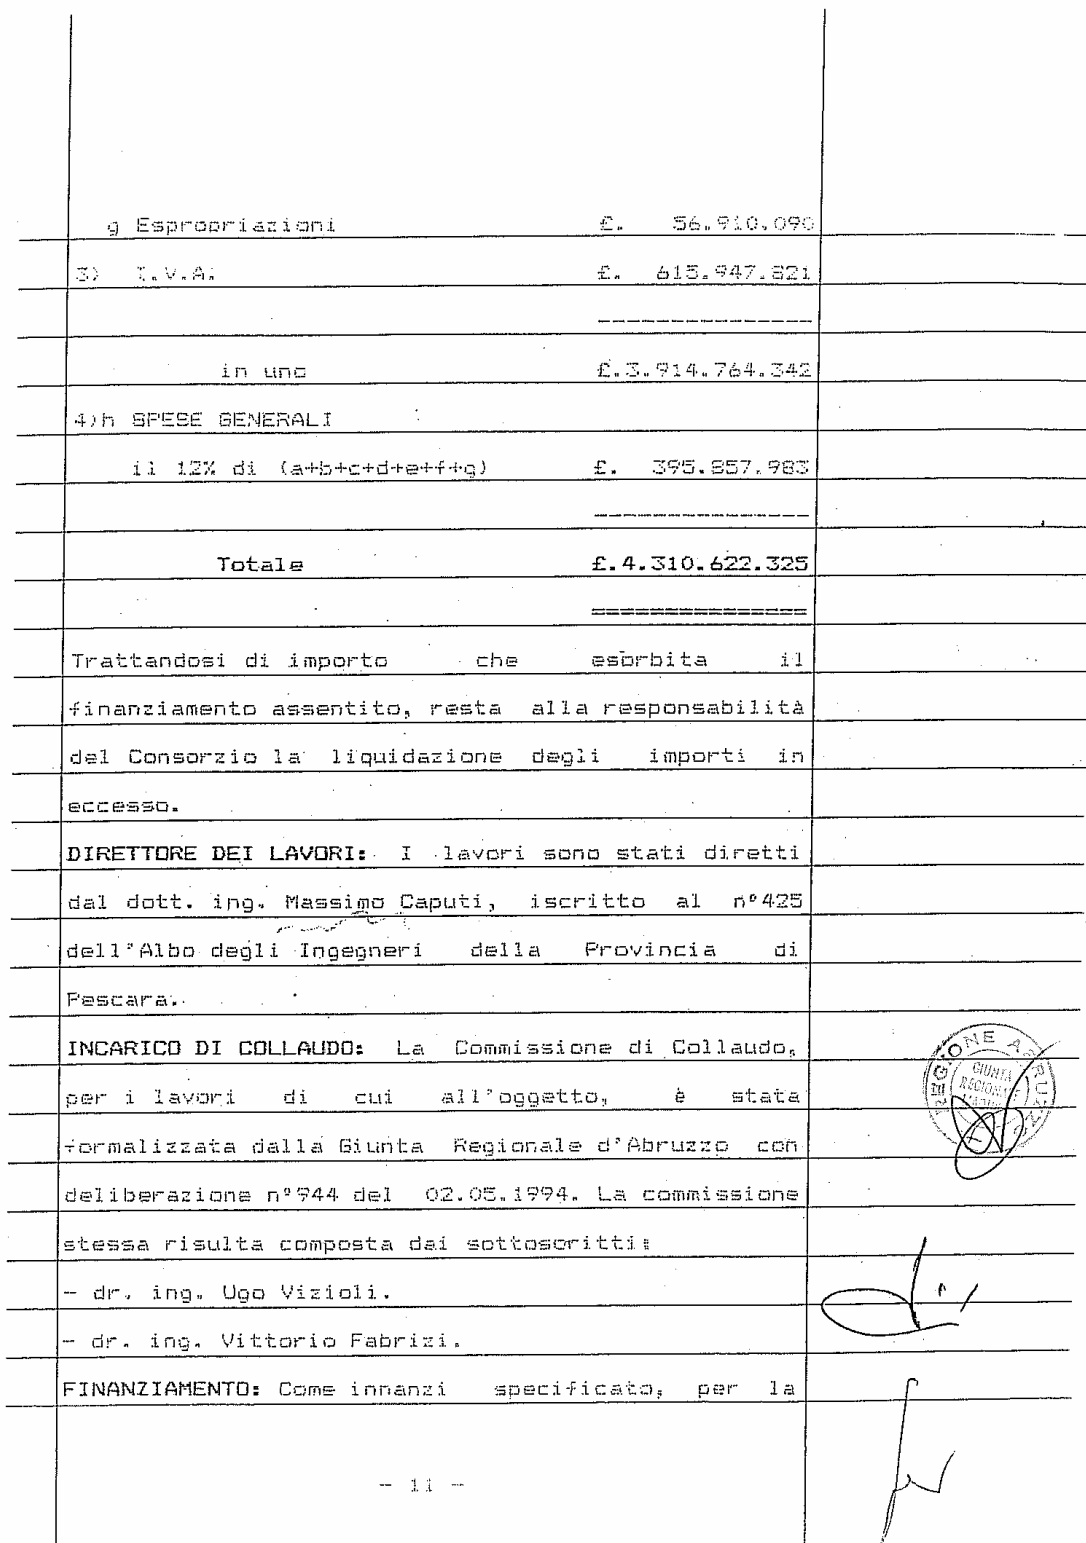 g Espropriazioni £. 56.910.090
3) I.V.A. £. 615.947.821
---------------
in uno £.3.914.764.342
4)h SPESE GENERALI
il 12% di (a+b+c+d+e+f+g) £. 395.857.983
---------------
Totale £.4.310.622.325
===============
Trattandosi di importo che esorbita il
finanziamento assentito, resta alla responsabilità
del Consorzio la liquidazione degli importi in
eccesso.
DIRETTORE DEI LAVORI: I lavori sono stati diretti
dal dott. ing. Massimo Caputi, iscritto al n°425
dell'Albo degli Ingegneri della Provincia di
Pescara.
INCARICO DI COLLAUDO: La Commissione di Collaudo,
per i lavori di cui all'oggetto, è stata
formalizzata dalla Giunta Regionale d'Abruzzo con
deliberazione n°944 del 02.05.1994. La commissione
stessa risulta composta dai sottoscritti:
- dr. ing. Ugo Vizioli.
- dr. ing. Vittorio Fabrizi.
FINANZIAMENTO: Come innanzi specificato, per la
- 11 -
REGIONE ABRUZZO
GIUNTA
REGIONALE